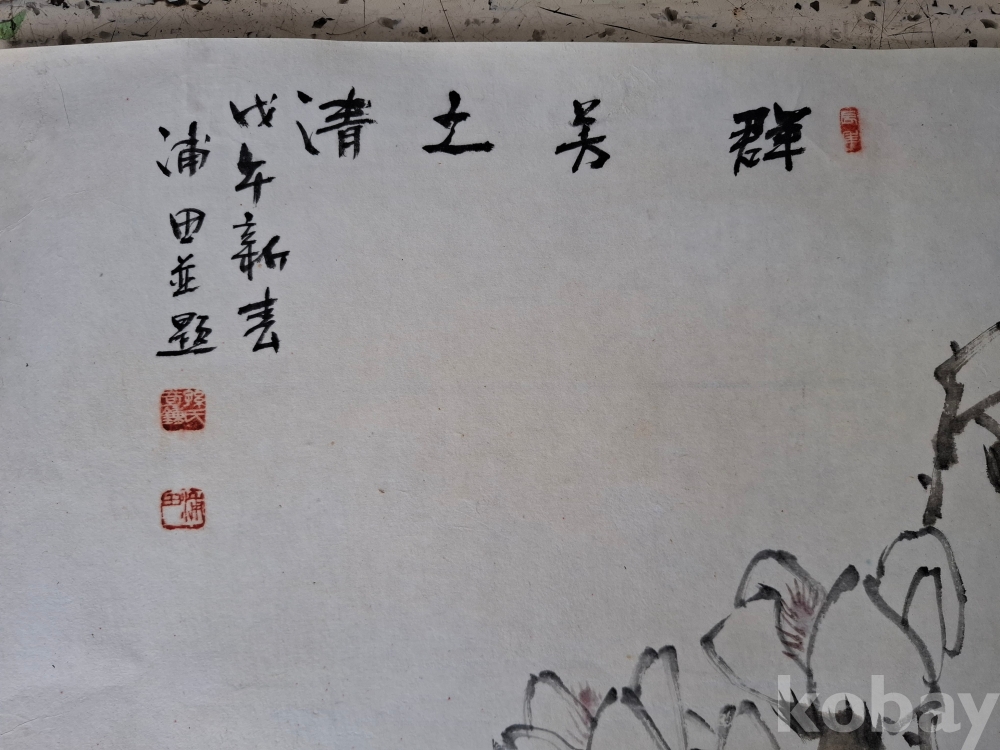 群芳之清
戊午新春
浦田並題
浦田
kobay